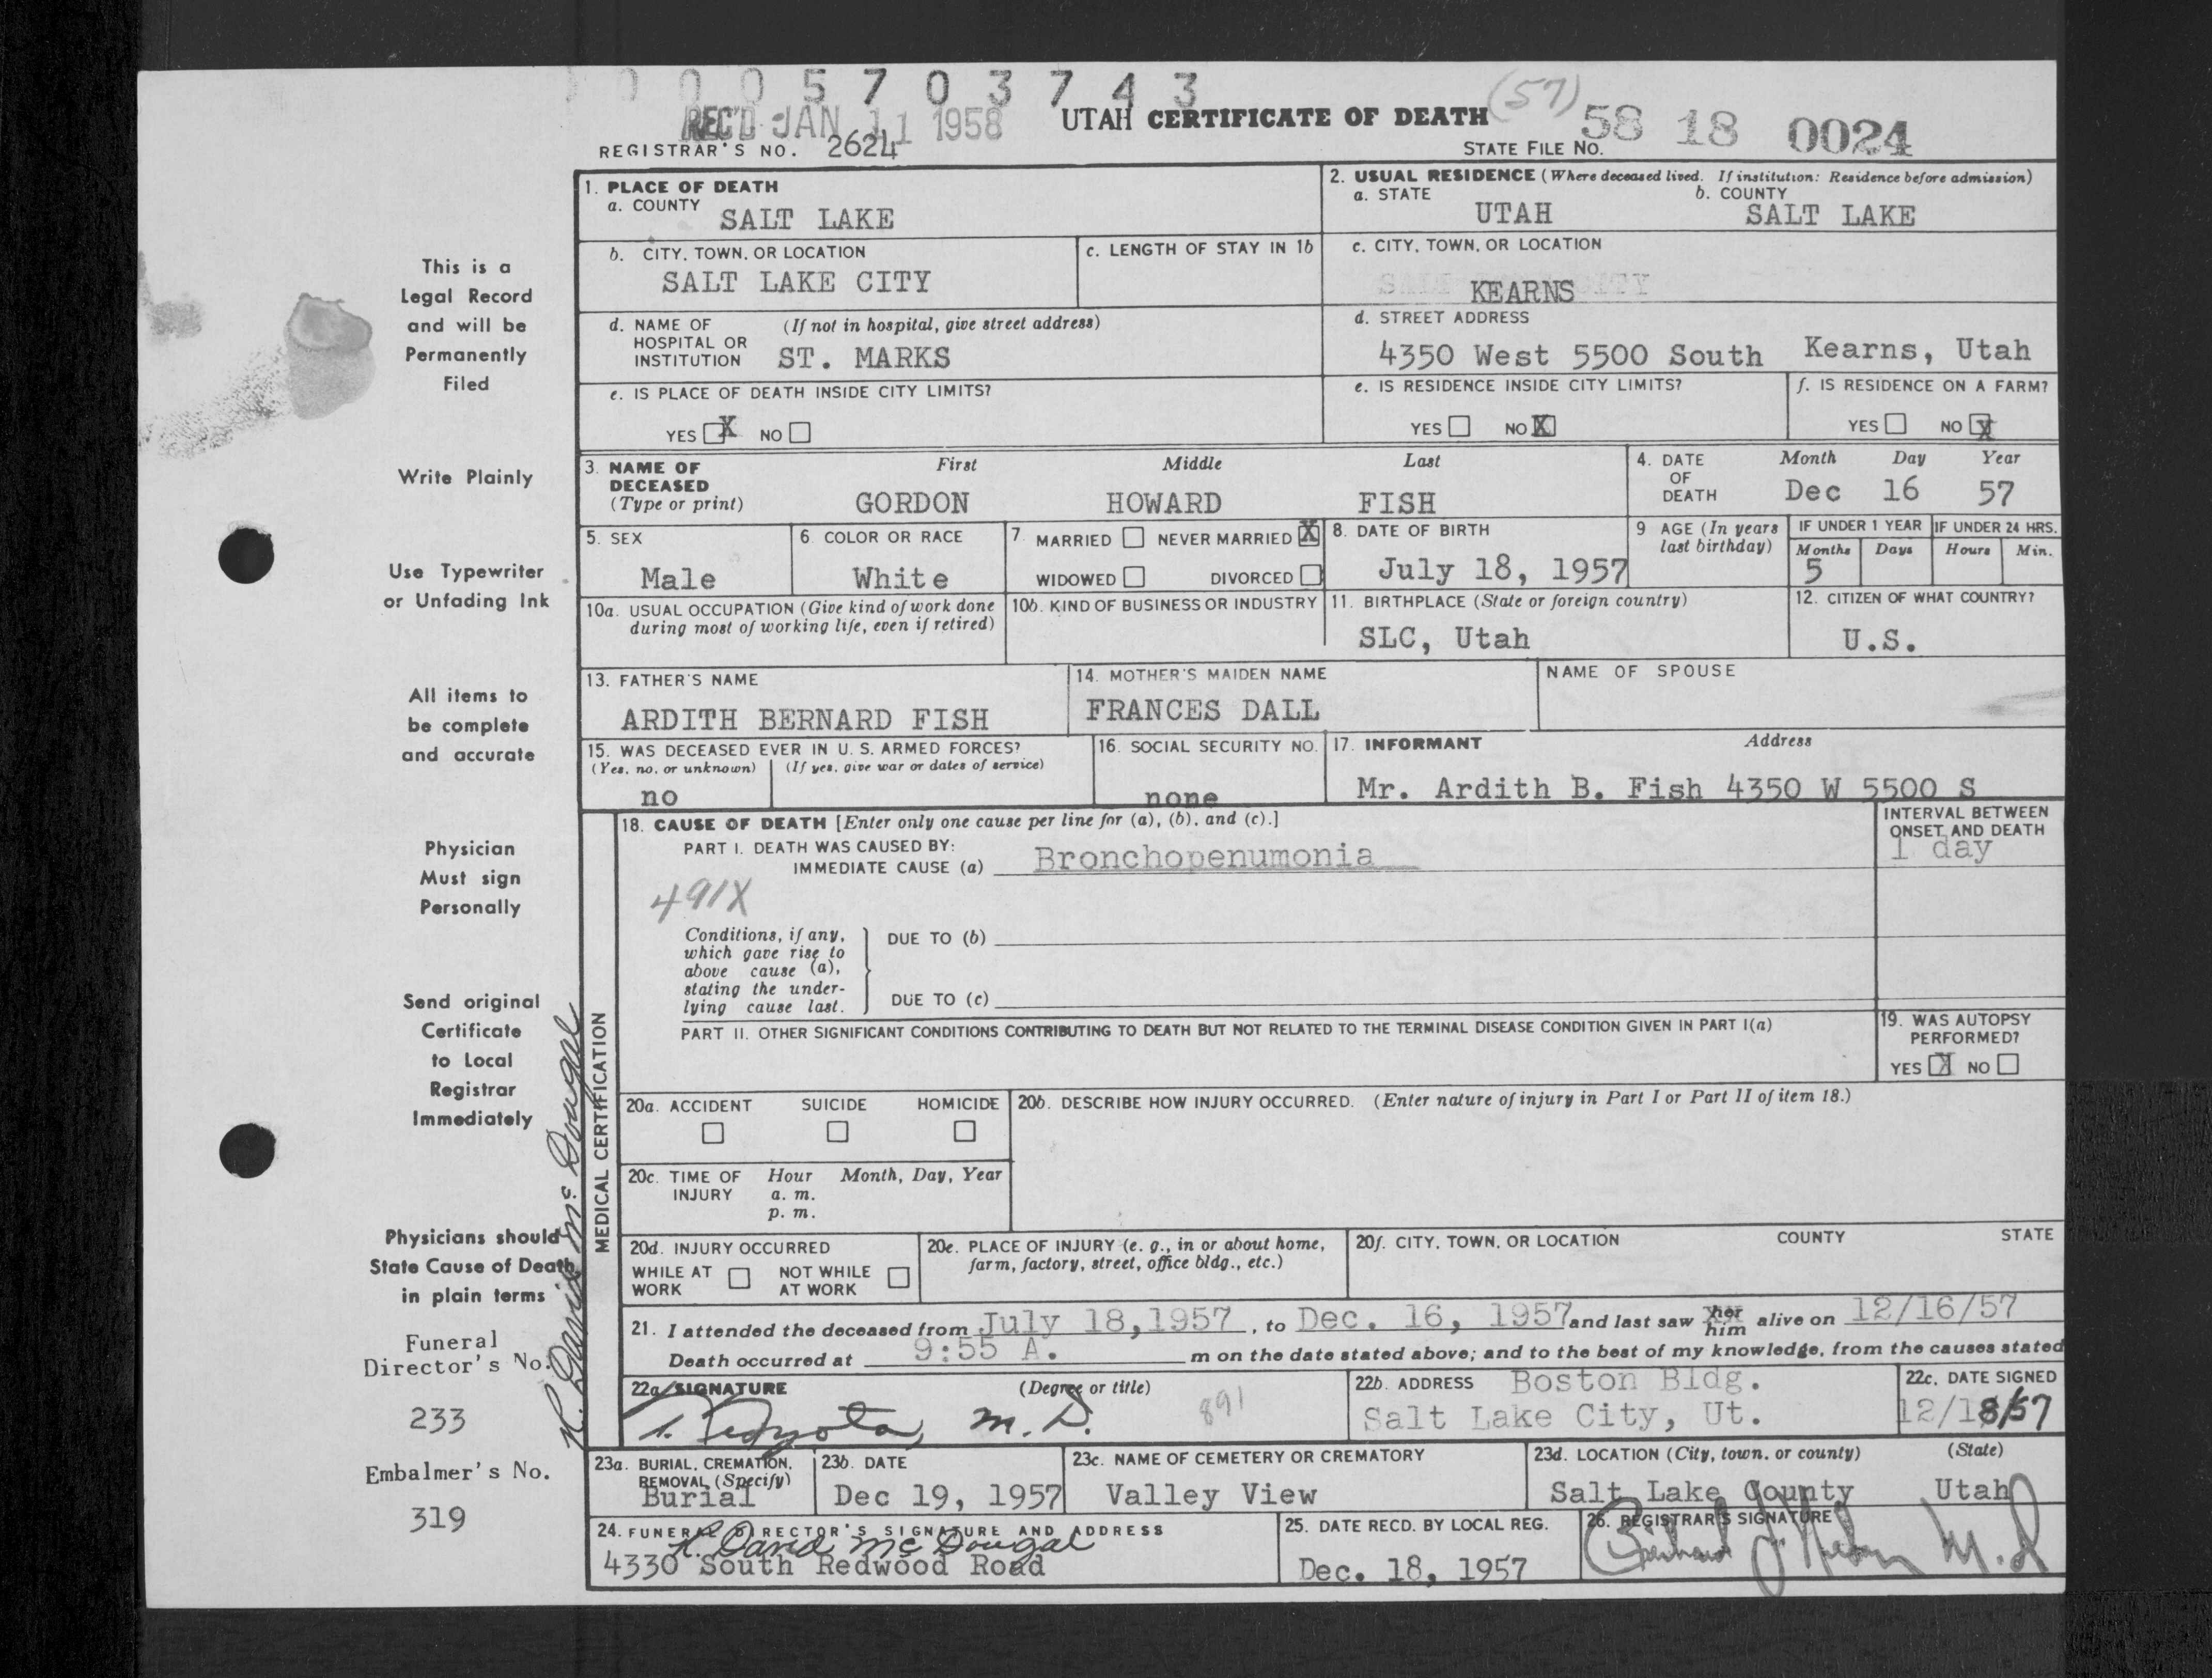 0 0 0 5 7 0 3 7 4 3
REC'D JAN 11 1958 UTAH CERTIFICATE OF DEATH (57) 58 18 0024
REGISTRAR'S NO. 2624 STATE FILE NO.
1. PLACE OF DEATH
a. COUNTY
SALT LAKE
2. USUAL RESIDENCE (Where deceased lived. If institution: Residence before admission)
a. STATE b. COUNTY
UTAH SALT LAKE
b. CITY, TOWN, OR LOCATION
SALT LAKE CITY
c. LENGTH OF STAY IN 1b
c. CITY, TOWN, OR LOCATION
KEARNS
d. NAME OF (If not in hospital, give street address)
HOSPITAL OR
INSTITUTION ST. MARKS
d. STREET ADDRESS
4350 West 5500 South Kearns, Utah
e. IS PLACE OF DEATH INSIDE CITY LIMITS?
YES X NO
e. IS RESIDENCE INSIDE CITY LIMITS?
YES NO X
f. IS RESIDENCE ON A FARM?
YES NO X
3. NAME OF First Middle Last
DECEASED
(Type or print) GORDON HOWARD FISH
4. DATE Month Day Year
OF
DEATH Dec 16 57
5. SEX
Male
6. COLOR OR RACE
White
7. MARRIED NEVER MARRIED X
WIDOWED DIVORCED
8. DATE OF BIRTH
July 18, 1957
9 AGE (In years
last birthday)
IF UNDER 1 YEAR IF UNDER 24 HRS.
Months Days Hours Min.
5
10a. USUAL OCCUPATION (Give kind of work done
during most of working life, even if retired)
10b. KIND OF BUSINESS OR INDUSTRY
11. BIRTHPLACE (State or foreign country)
SLC, Utah
12. CITIZEN OF WHAT COUNTRY?
U.S.
13. FATHER'S NAME
ARDITH BERNARD FISH
14. MOTHER'S MAIDEN NAME
FRANCES DALL
NAME OF SPOUSE
15. WAS DECEASED EVER IN U. S. ARMED FORCES?
(Yes, no, or unknown) (If yes, give war or dates of service)
no
16. SOCIAL SECURITY NO.
none
17. INFORMANT Address
Mr. Ardith B. Fish 4350 W 5500 S
MEDICAL CERTIFICATION
18. CAUSE OF DEATH [Enter only one cause per line for (a), (b), and (c).]
PART I. DEATH WAS CAUSED BY:
IMMEDIATE CAUSE (a) Bronchopenumonia
INTERVAL BETWEEN
ONSET AND DEATH
1 day
491X
Conditions, if any,
which gave rise to
above cause (a),
stating the under-
lying cause last.
DUE TO (b)
DUE TO (c)
PART II. OTHER SIGNIFICANT CONDITIONS CONTRIBUTING TO DEATH BUT NOT RELATED TO THE TERMINAL DISEASE CONDITION GIVEN IN PART I(a)
19. WAS AUTOPSY
PERFORMED?
YES X NO
20a. ACCIDENT SUICIDE HOMICIDE
20b. DESCRIBE HOW INJURY OCCURRED. (Enter nature of injury in Part I or Part II of item 18.)
20c. TIME OF Hour Month, Day, Year
INJURY a. m.
p. m.
20d. INJURY OCCURRED
WHILE AT NOT WHILE
WORK AT WORK
20e. PLACE OF INJURY (e. g., in or about home,
farm, factory, street, office bldg., etc.)
20f. CITY, TOWN, OR LOCATION COUNTY STATE
21. I attended the deceased from July 18,1957, to Dec. 16, 1957 and last saw her him alive on 12/16/57
Death occurred at 9:55 A. m on the date stated above; and to the best of my knowledge, from the causes stated
22a. SIGNATURE (Degree or title)
M. D. 891
22b. ADDRESS Boston Bldg.
Salt Lake City, Ut.
22c. DATE SIGNED
12/18/57
23a. BURIAL, CREMATION,
REMOVAL (Specify)
Burial
23b. DATE
Dec 19, 1957
23c. NAME OF CEMETERY OR CREMATORY
Valley View
23d. LOCATION (City, town, or county) (State)
Salt Lake County Utah
24. FUNERAL DIRECTOR'S SIGNATURE AND ADDRESS
R. David McDougal
4330 South Redwood Road
25. DATE RECD. BY LOCAL REG.
Dec. 18, 1957
26. REGISTRAR'S SIGNATURE
M.D.
This is a
Legal Record
and will be
Permanently
Filed
Write Plainly
Use Typewriter
or Unfading Ink
All items to
be complete
and accurate
Physician
Must sign
Personally
Send original
Certificate
to Local
Registrar
Immediately
Physicians should
State Cause of Death
in plain terms
Funeral
Director's No.
233
Embalmer's No.
319
R. David McDougal